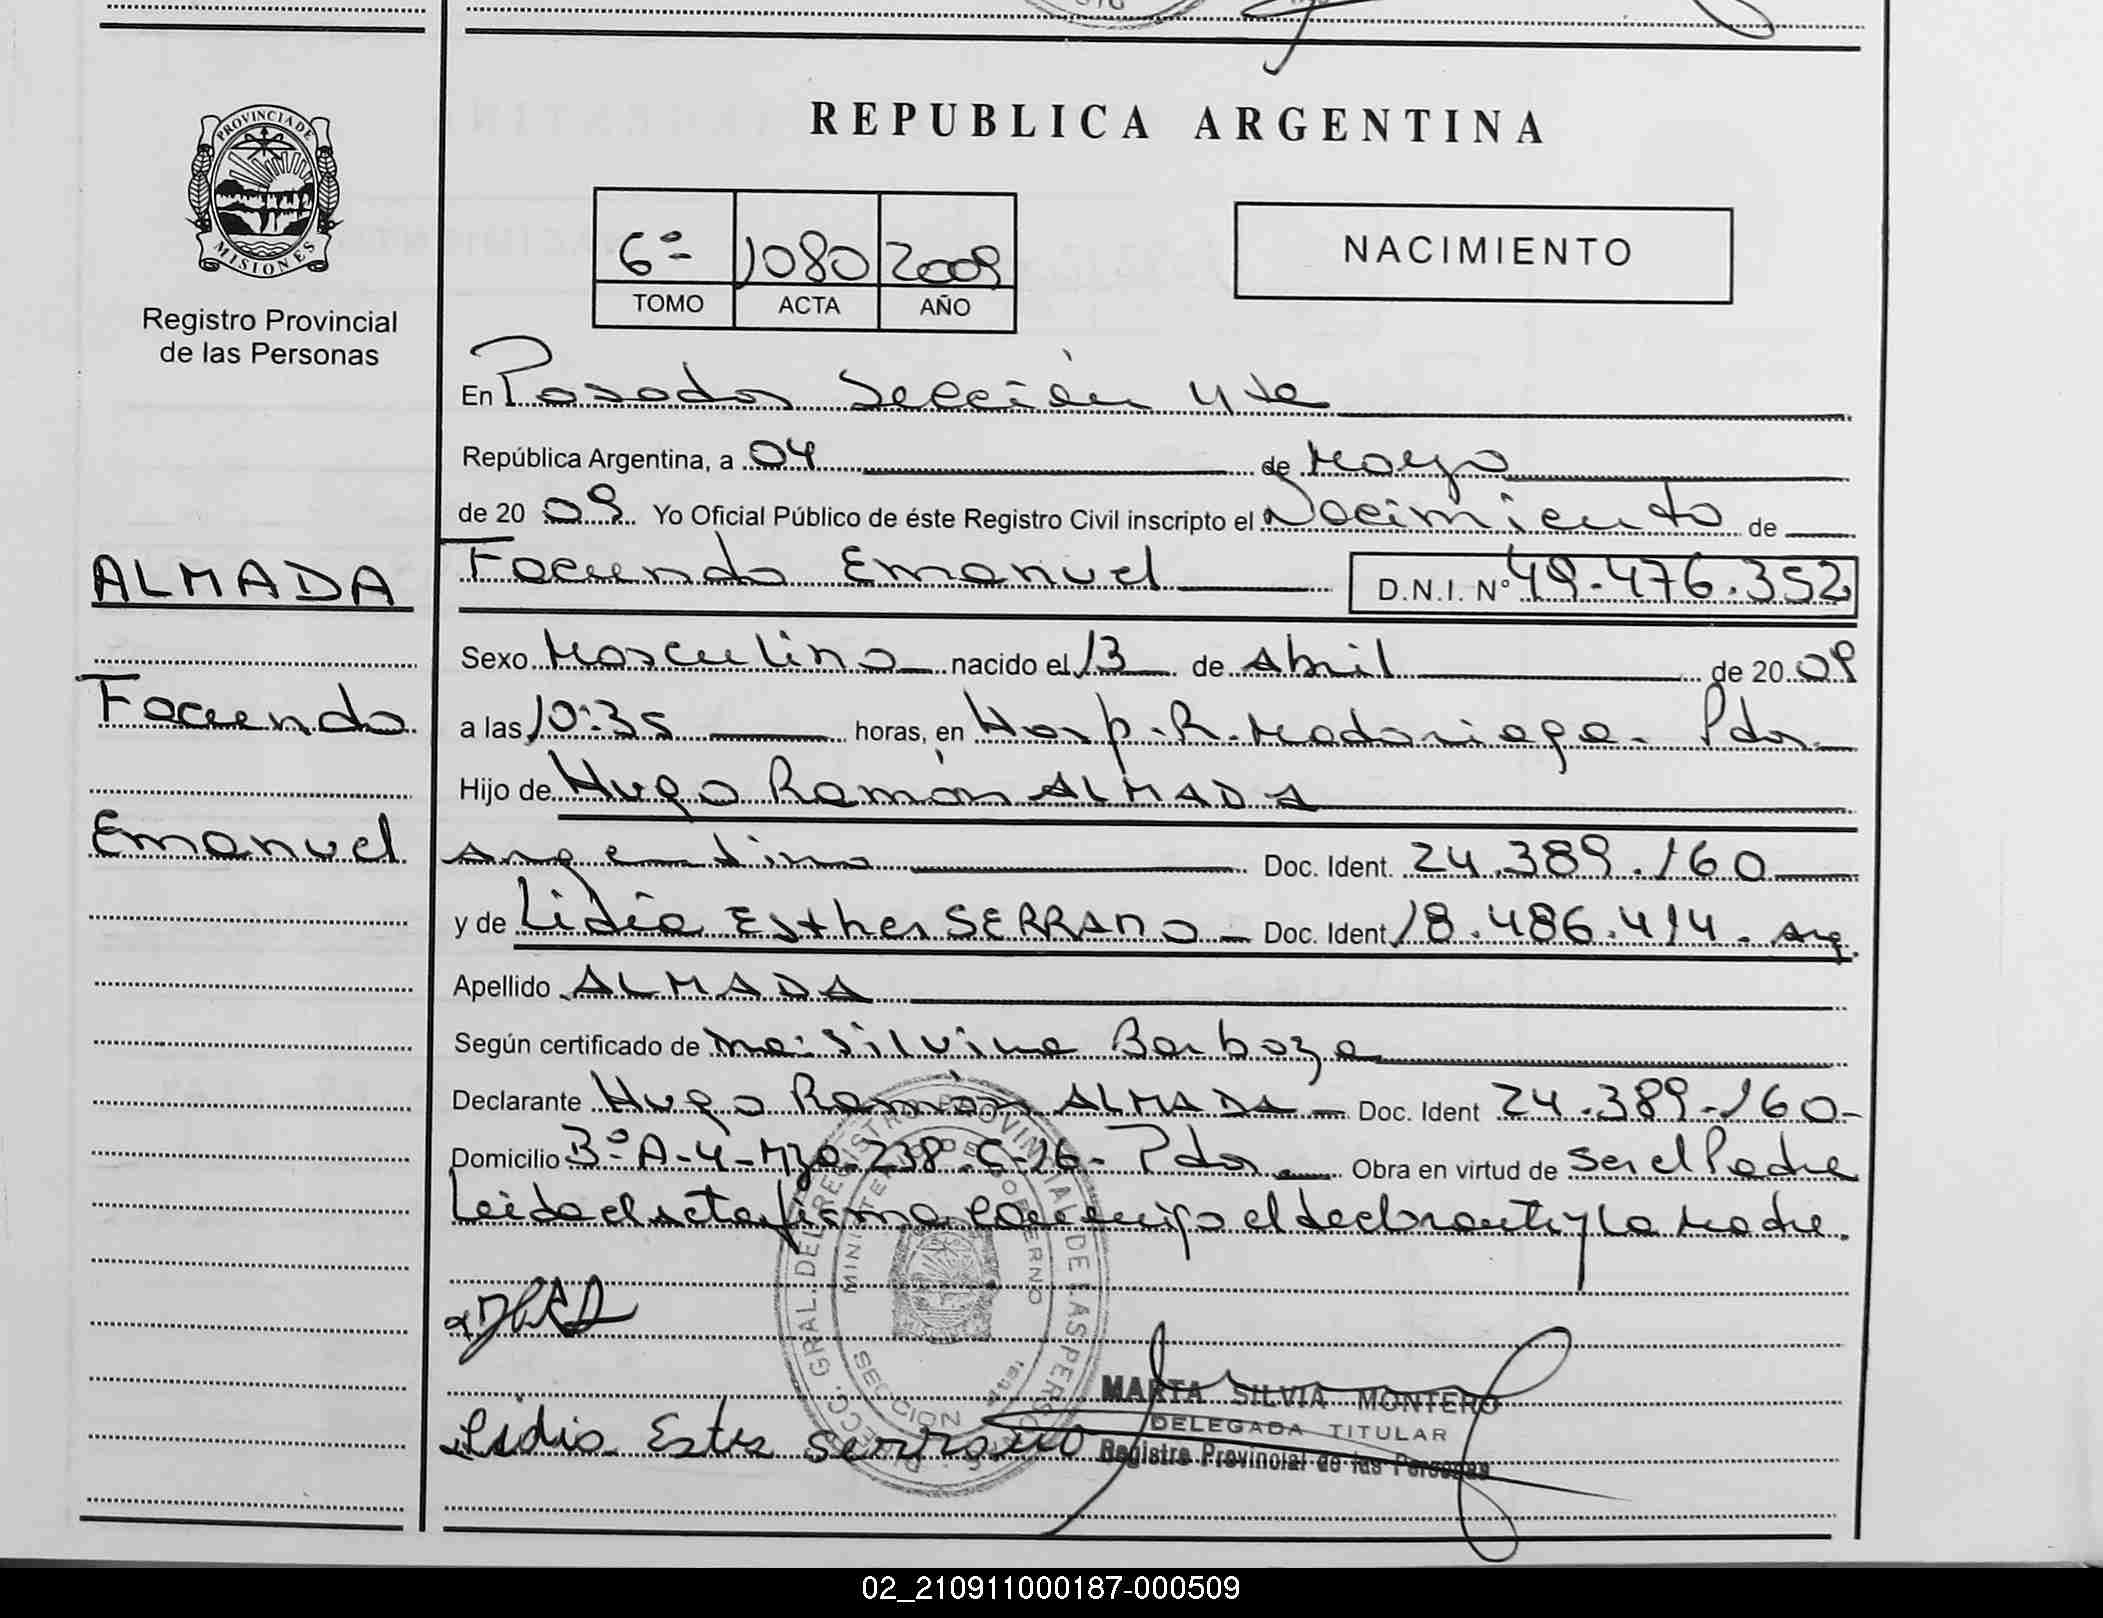 REPUBLICA ARGENTINA
PROVINCIA DE
MISIONES
Registro Provincial
de las Personas
6º 1080 2009
TOMO ACTA AÑO
NACIMIENTO
En Posadas Sección 4ta
República Argentina, a 04 de Mayo
de 20 09 Yo Oficial Público de éste Registro Civil inscripto el Nacimiento de
Facundo Emanuel D.N.I. Nº 49.476.352
ALMADA
Facundo
Emanuel
Sexo Masculino nacido el 13 de Abril de 20 09
a las 10:35 horas, en Hosp. R. Madariaga. Pdas
Hijo de Hugo Ramón ALMADA
Argentino Doc. Ident. 24.389.160
y de Lidia Esther SERRANO Doc. Ident 18.486.414. Arg.
Apellido ALMADA
Según certificado de Silvina Barboza
Declarante Hugo Ramón ALMADA Doc. Ident 24.389.160
Domicilio Bº A-4-Mzo. 238. C-26- Pdas Obra en virtud de ser el Padre
Leida el acta firma conmigo el declarante y la Madre.
DIRECC. GRAL. DEL REGISTRO PROVINCIAL DE LAS PERSONAS
MINISTERIO DE GOBIERNO
SECCION
Lidia Ester Serrano
MARTA SILVIA MONTERO
DELEGADA TITULAR
Registro Provincial de las Personas
02_210911000187-000509